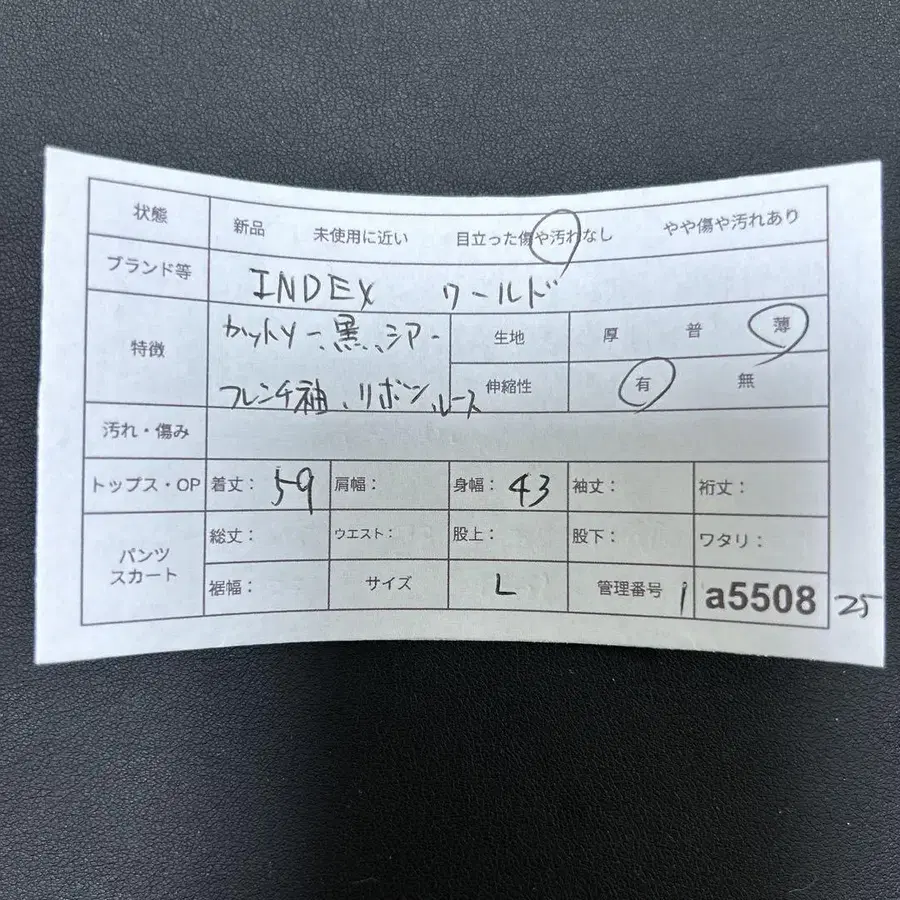 状態 新品 未使用に近い 目立った傷や汚れなし やや傷や汚れあり
ブランド等 INDEX ワールド
特徴 カットソー、黒、シアー 生地 厚 普 薄
フレンチ袖、リボン、ルース 伸縮性 有 無
汚れ・傷み
トップス・OP 着丈： 59 肩幅： 身幅： 43 袖丈： 裄丈：
パンツ スカート 総丈： ウエスト： 股上： 股下： ワタリ：
裾幅： サイズ L 管理番号 1 a5508 25